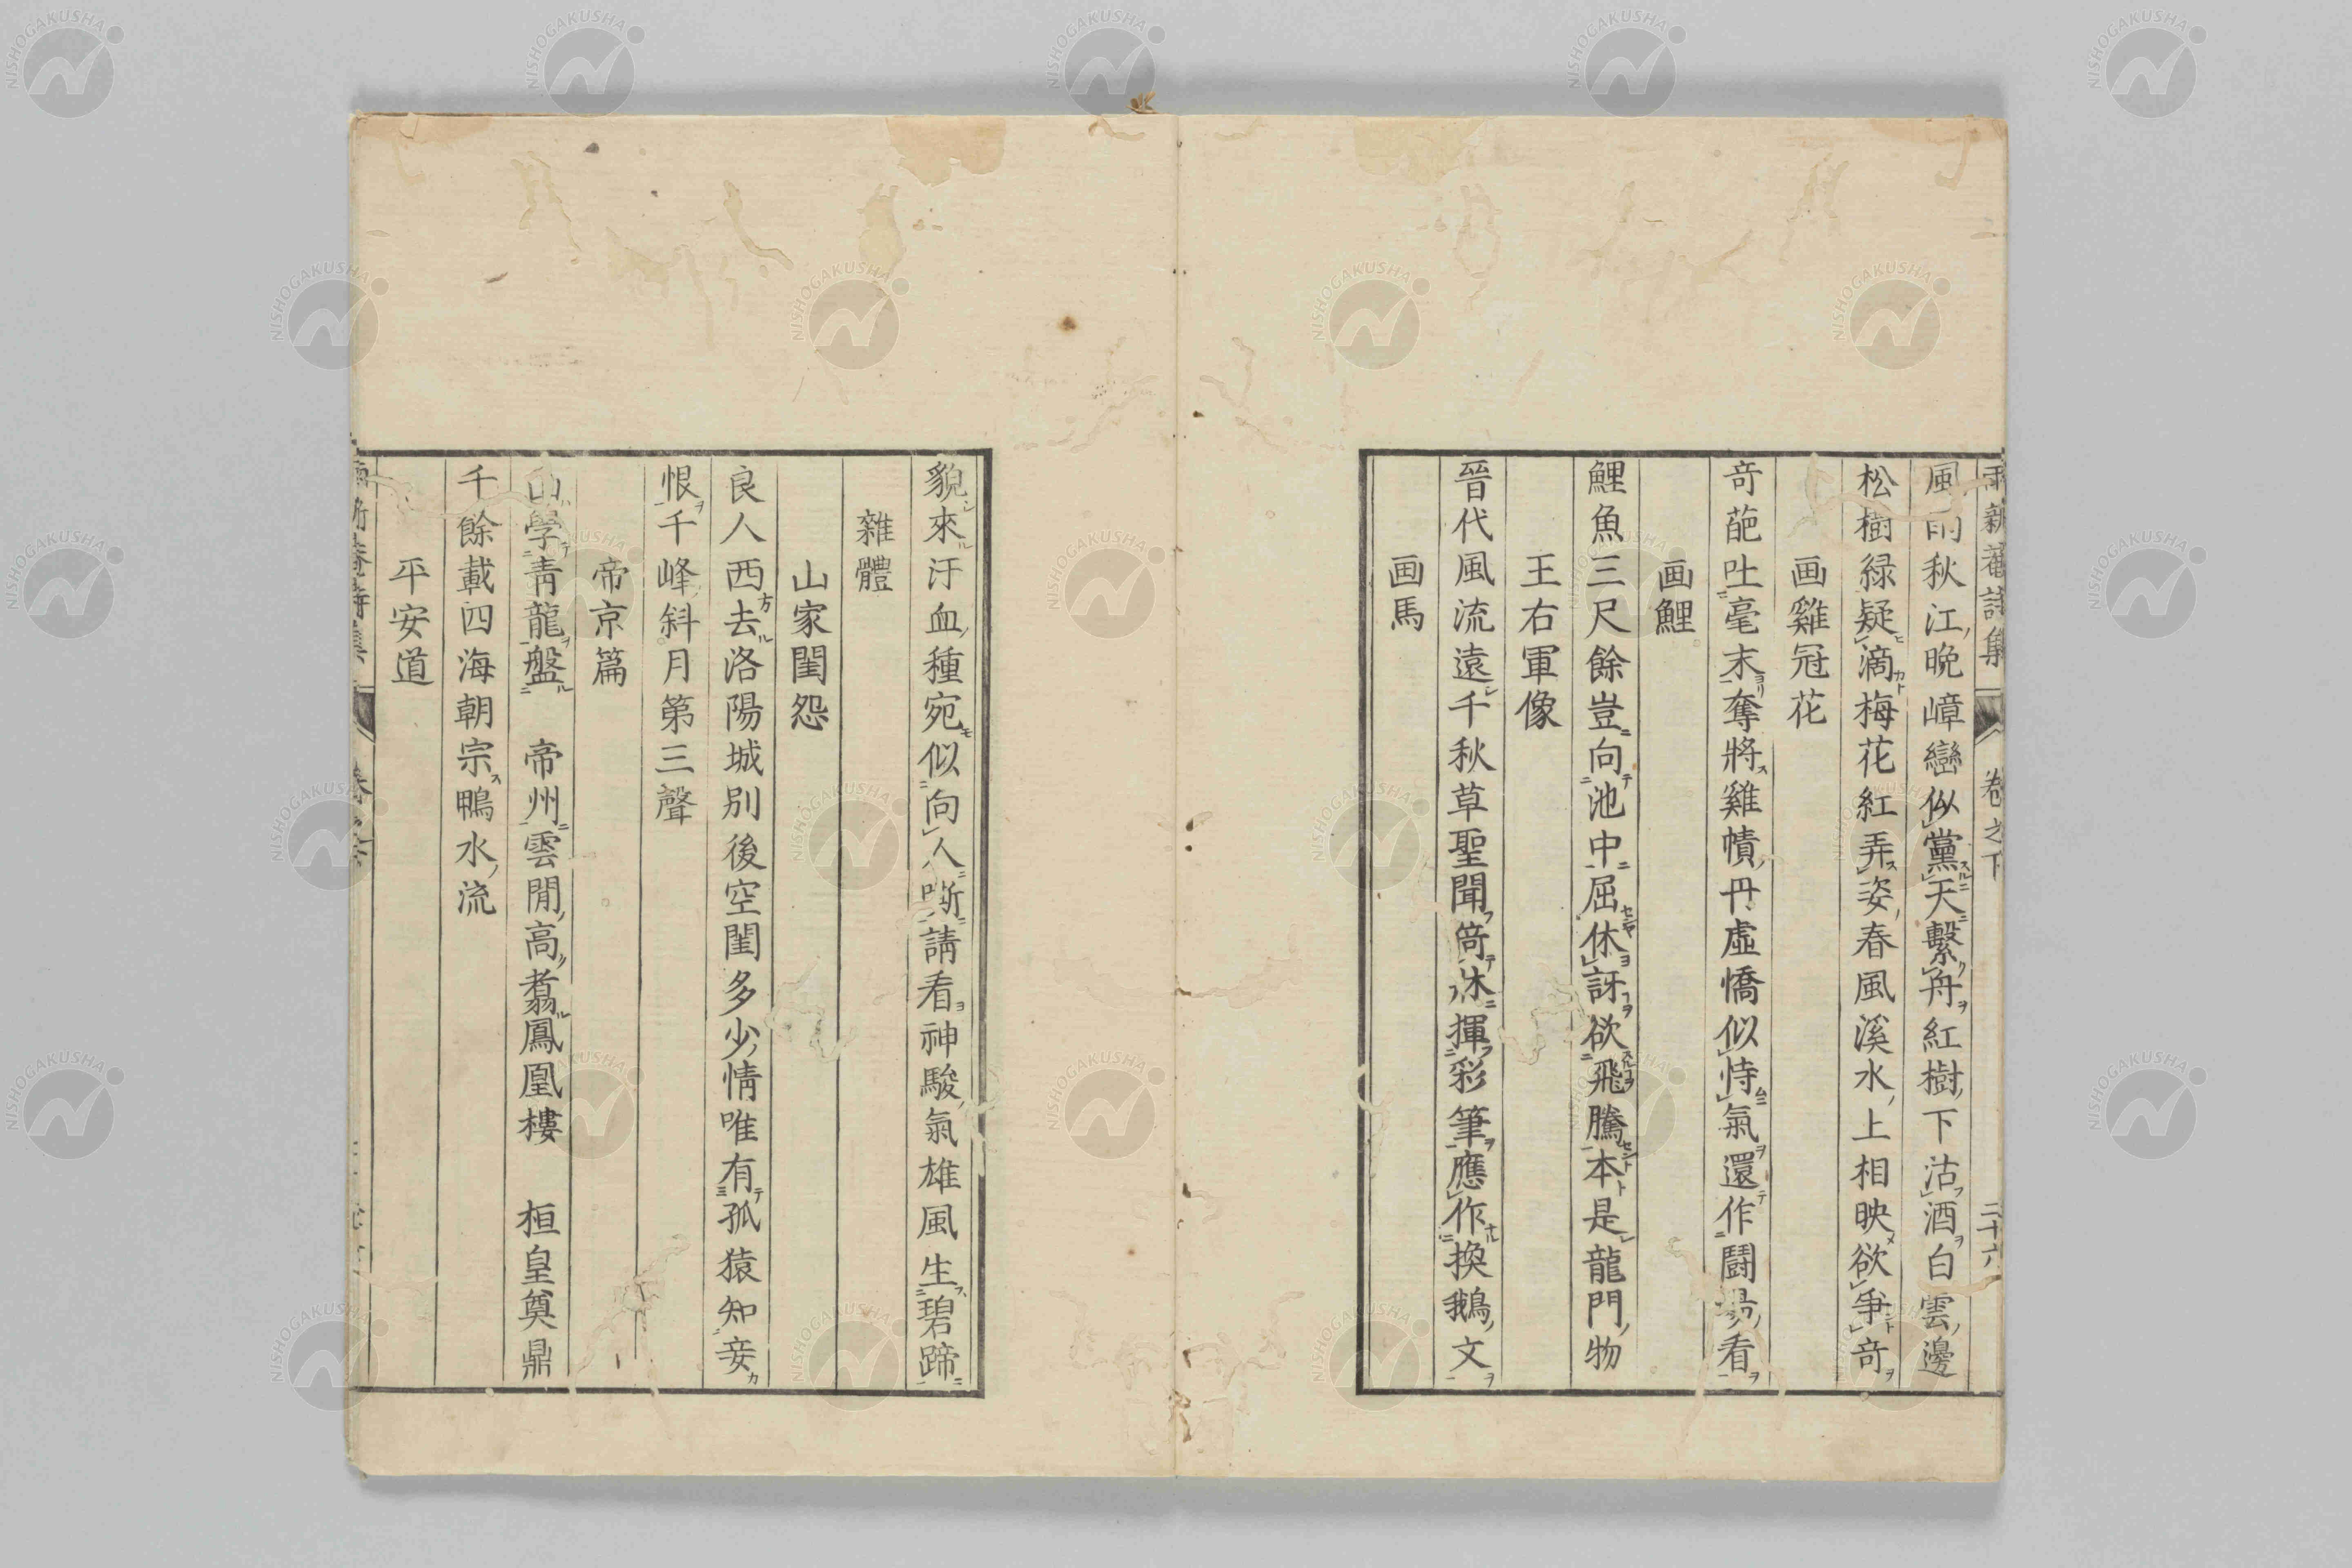 卷之下
二十六
秋江晩嶂巒似黨天繫舟紅樹下沽酒白雲邊
松樹緑疑滴梅花紅弄姿春風溪水上相映欲爭奇
画雞冠花
奇葩吐毫末奪將雞幘丹虛憍似恃氣還作鬪場看
画鯉
鯉魚三尺餘豈向池中屈休訝欲飛騰本是龍門物
王右軍像
晉代風流遠千秋草聖聞倚牀揮彩筆應作換鵝文
画馬
貌來汗血種宛似向人嘶請看神駿氣雄風生碧蹄
雜體
山家閨怨
良人西去洛陽城別後空閨多少情唯有孤猿知妾
恨千峰斜月第三聲
帝京篇
山學青龍盤　帝州雲閒高翥鳳凰樓　桓皇奠鼎
千餘載四海朝宗鴨水流
平安道